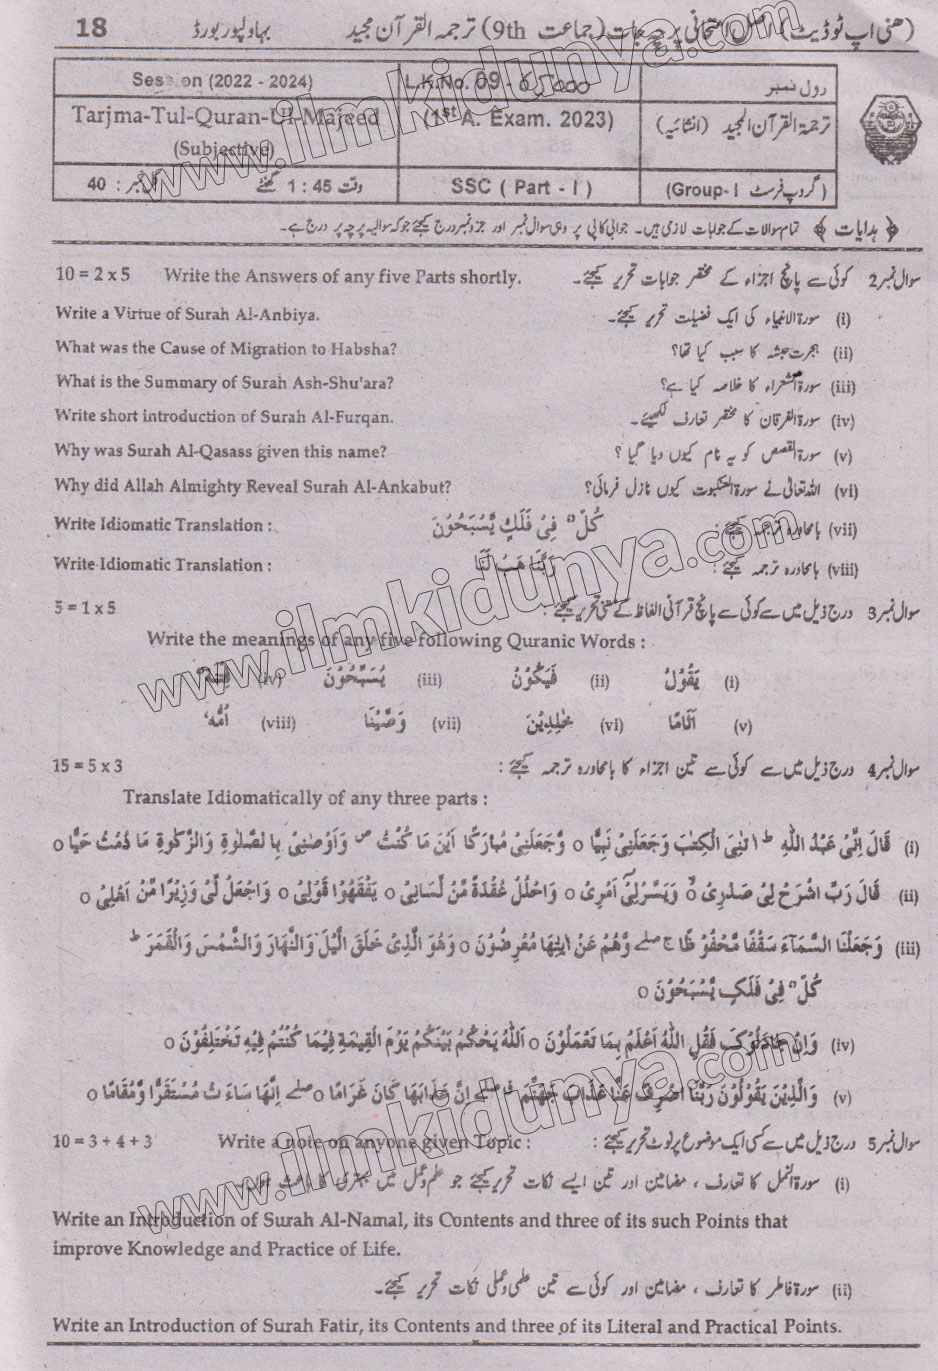 (ھنی اپ ٹو ڈیٹ) اصل امتحانی پرچہ جات (جماعت 9th) ترجمہ القرآن مجید بہاولپور بورڈ 18
رول نمبر L.K.No. 09 - Session (2022 - 2024)
ترجمۃ القرآن المجید (انشائیہ) (1st A. Exam. 2023) Tarjma-Tul-Quran-Ul-Majeed
(Subjective)
(گروپ فرسٹ Group- I) SSC ( Part - I ) وقت 1 : 45 گھنٹے کل نمبر : 40
﴿ ہدایات ﴾ تمام سوالات کے جوابات لازمی ہیں۔ جوابی کاپی پر وہی سوال نمبر اور جزو نمبر درج کیجئے جو کہ سوالیہ پرچہ پر درج ہے۔
سوال نمبر 2 کوئی سے پانچ اجزاء کے مختصر جوابات تحریر کیجئے۔ Write the Answers of any five Parts shortly. 10 = 2 x 5
(i) سورۃ الانبیاء کی ایک فضیلت تحریر کیجئے۔ Write a Virtue of Surah Al-Anbiya.
(ii) ہجرت حبشہ کا سبب کیا تھا؟ What was the Cause of Migration to Habsha?
(iii) سورۃ الشعراء کا خلاصہ کیا ہے؟ What is the Summary of Surah Ash-Shu'ara?
(iv) سورۃ الفرقان کا مختصر تعارف لکھیئے۔ Write short introduction of Surah Al-Furqan.
(v) سورۃ القصص کو یہ نام کیوں دیا گیا ؟ Why was Surah Al-Qasass given this name?
(vi) اللہ تعالیٰ نے سورۃ العنکبوت کیوں نازل فرمائی؟ Why did Allah Almighty Reveal Surah Al-Ankabut?
(vii) بامحاورہ ترجمہ کیجئے : كُلٌّ فِىْ فَلَكٍ يَّسْبَحُوْنَ Write Idiomatic Translation :
(viii) بامحاورہ ترجمہ کیجئے : رَبَّنَا هَبْ لَنَا Write Idiomatic Translation :
سوال نمبر 3 درج ذیل میں سے کوئی سے پانچ قرآنی الفاظ کے معنی تحریر کیجئے : 5 = 1 x 5
Write the meanings of any five following Quranic Words :
(i) يَقُوْلُ (ii) فَيَكُوْنُ (iii) يُسَبِّحُوْنَ (iv)
(v) اَثَامًا (vi) خٰلِدِيْنَ (vii) وَصَّيْنَا (viii) اُمُّهٗ
سوال نمبر 4 درج ذیل میں سے کوئی سے تین اجزاء کا بامحاورہ ترجمہ کیجئے : 15 = 5 x 3
Translate Idiomatically of any three parts :
(i) قَالَ اِنِّىْ عَبْدُ اللّٰهِ ؕ اٰتٰنِىَ الْكِتٰبَ وَجَعَلَنِىْ نَبِيًّا ○ وَّجَعَلَنِىْ مُبٰرَكًا اَيْنَ مَا كُنْتُ ۪ وَاَوْصٰنِىْ بِالصَّلٰوةِ وَالزَّكٰوةِ مَا دُمْتُ حَيًّا ○
(ii) قَالَ رَبِّ اشْرَحْ لِىْ صَدْرِىْ ○ وَيَسِّرْلِىْٓ اَمْرِىْ ○ وَاحْلُلْ عُقْدَةً مِّنْ لِّسَانِىْ ○ يَفْقَهُوْا قَوْلِىْ ○ وَاجْعَلْ لِّىْ وَزِيْرًا مِّنْ اَهْلِىْ ○
(iii) وَجَعَلْنَا السَّمَآءَ سَقْفًا مَّحْفُوْظًا ج صلے وَّهُمْ عَنْ اٰيٰتِهَا مُعْرِضُوْنَ ○ وَهُوَ الَّذِىْ خَلَقَ الَّيْلَ وَالنَّهَارَ وَالشَّمْسَ وَالْقَمَرَ ؕ
كُلٌّ فِىْ فَلَكٍ يَّسْبَحُوْنَ ○
(iv) وَاِنْ جَادَلُوْكَ فَقُلِ اللّٰهُ اَعْلَمُ بِمَا تَعْمَلُوْنَ ○ اَللّٰهُ يَحْكُمُ بَيْنَكُمْ يَوْمَ الْقِيٰمَةِ فِيْمَا كُنْتُمْ فِيْهِ تَخْتَلِفُوْنَ ○
(v) وَالَّذِيْنَ يَقُوْلُوْنَ رَبَّنَا اصْرِفْ عَنَّا عَذَابَ جَهَنَّمَ ق صلے اِنَّ عَذَابَهَا كَانَ غَرَامًا ○ صلے اِنَّهَا سَآءَتْ مُسْتَقَرًّا وَّمُقَامًا ○
سوال نمبر 5 درج ذیل میں سے کسی ایک موضوع پر نوٹ تحریر کیجئے : Write a note on anyone given Topic : 10 = 3 + 4 + 3
(i) سورۃ النمل کا تعارف ، مضامین اور تین ایسے نکات تحریر کیجئے جو علم و عمل میں بہتری کا باعث ہوں۔
Write an Introduction of Surah Al-Namal, its Contents and three of its such Points that
improve Knowledge and Practice of Life.
(ii) سورۃ فاطر کا تعارف ، مضامین اور کوئی سے تین علمی و عملی نکات تحریر کیجئے۔
Write an Introduction of Surah Fatir, its Contents and three of its Literal and Practical Points.
www.ilmkidunya.com
www.ilmkidunya.com
www.ilmkidunya.com